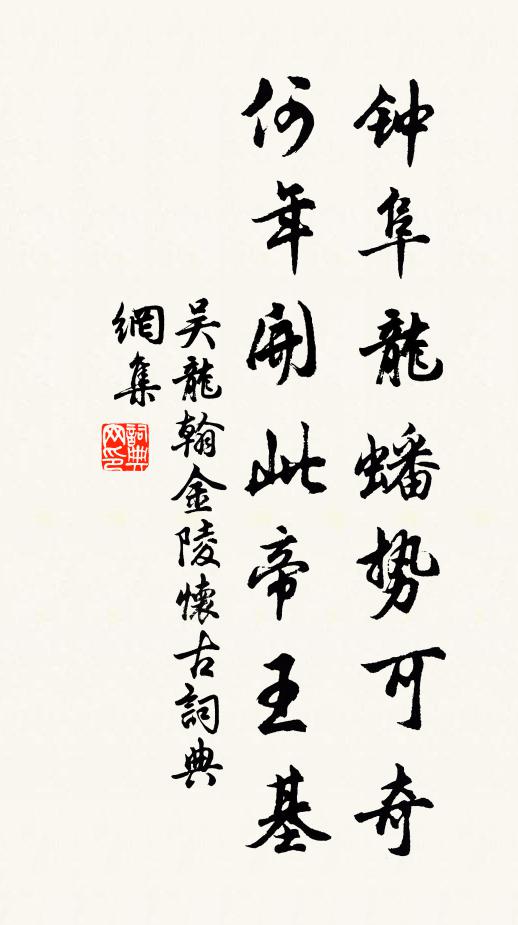 钟阜龍蟠势可奇
何年開此帝王基
吴龍翰金陵懷古詞典
網集
詞典
网印